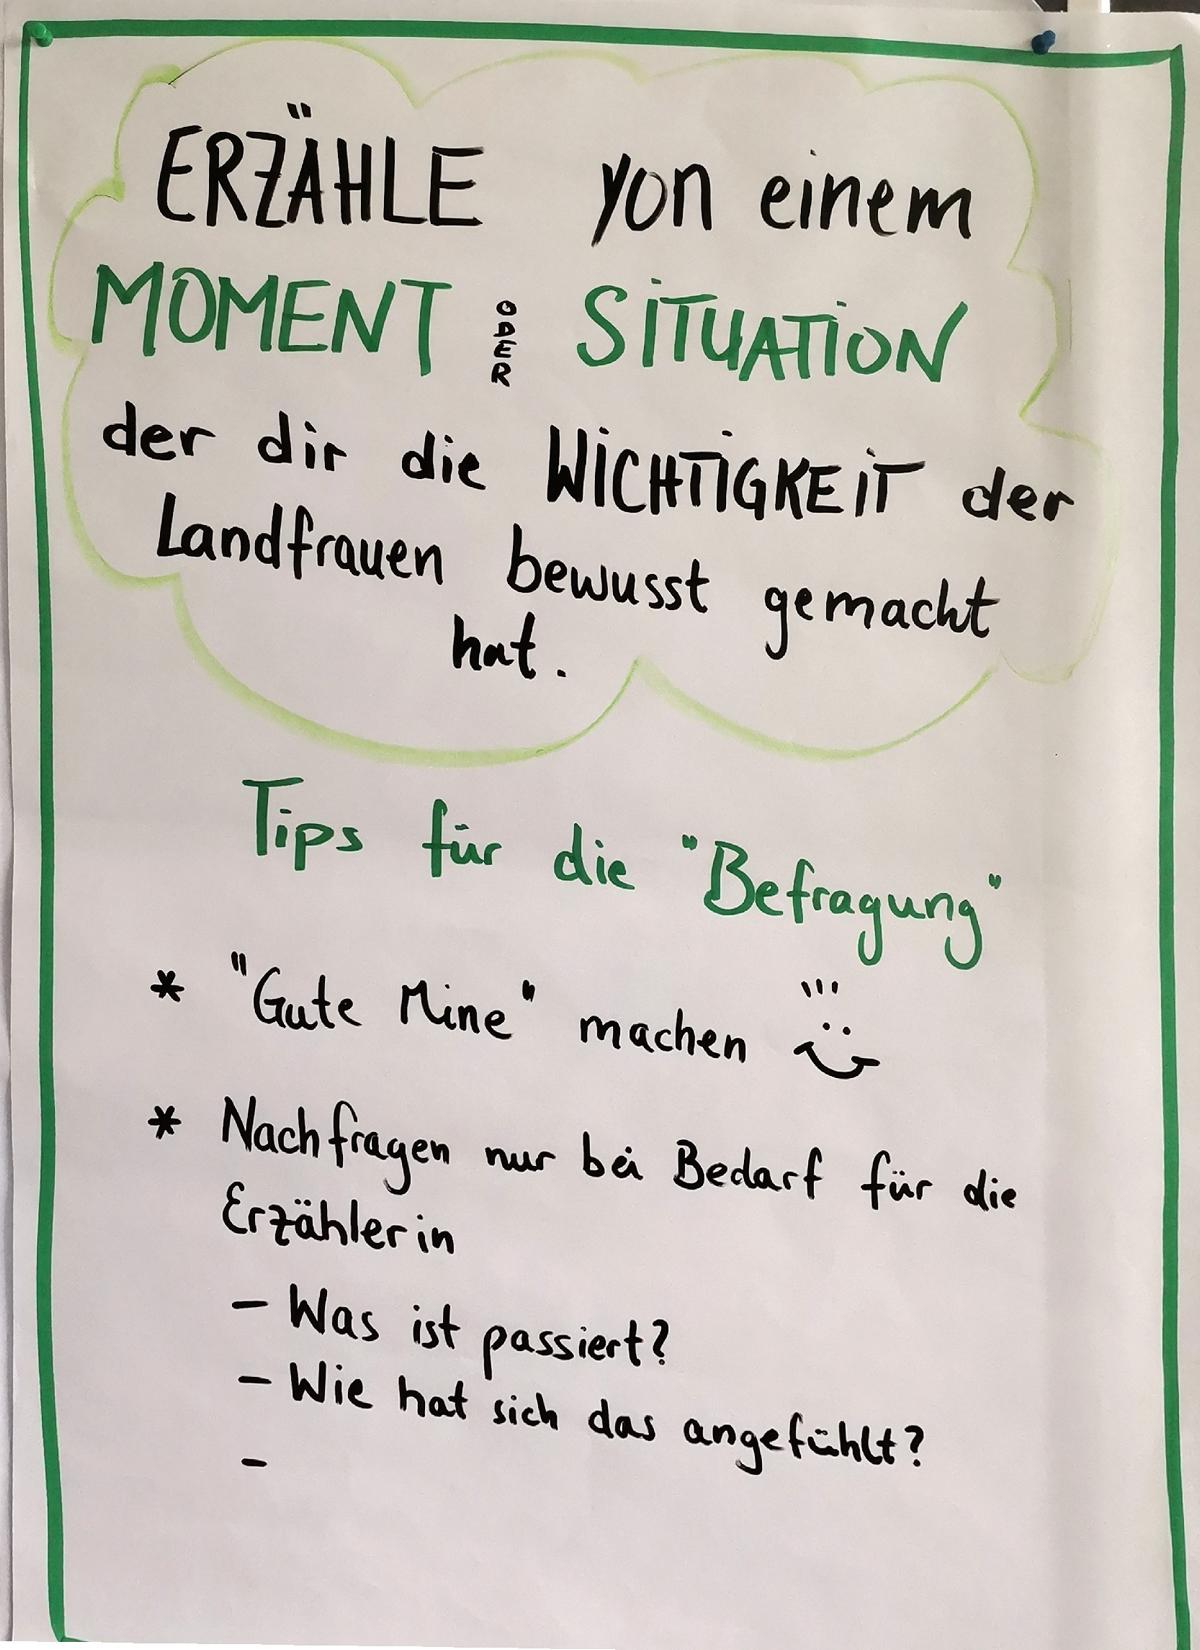 ERZÄHLE von einem
MOMENT ODER SITUATION
der dir die WICHTIGKEIT der
Landfrauen bewusst gemacht
hat.
Tips für die "Befragung"
* "Gute Mine" machen
* Nachfragen nur bei Bedarf für die
Erzählerin
- Was ist passiert?
- Wie hat sich das angefühlt?
-